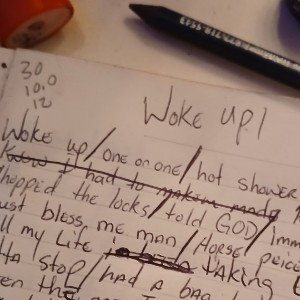 30
10.0
12
WOKE UP!
Woke up / one or one / hot shower
Knew I had to makem mady
hopped the locks / told GOD / Imm
ust bless me man / Horse peice
ll my life taking
ta stop / had a ba
en the